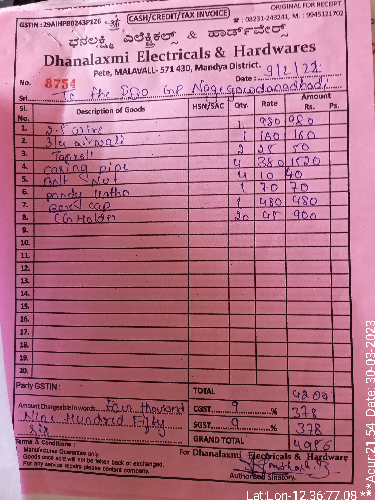 ORIGINAL FOR RECEIPT
GSTIN : 29AIHPB0243P126
CASH/CREDIT/TAX INVOICE
☎ : 08231-243241, M. : 9945121702
ಧನಲಕ್ಷ್ಮಿ ಎಲೆಕ್ಟ್ರಿಕಲ್ಸ್ & ಹಾರ್ಡ್‌ವೇರ್ಸ್
Dhanalaxmi Electricals & Hardwares
Pete, MALAVALL- 571 430, Mandya District.
No. 8754 Date : 9/2/22
Sri To the PDO GP
Sl. No. Description of Goods HSN/SAC Qty. Rate Amount Rs. Ps.
1. 2.5 wire 1 980 980
2. 3/4 1 160 160
3. 2 25 50
4. casing pipe 4 380 1520
5. Bolt Nut 4 10 40
6. 1 70 70
7. cap 1 480 480
8. CG Holder 20 45 900
9.
10.
11.
12.
13.
14.
15.
16.
17.
18.
19.
20.
Party GSTIN :
TOTAL 4200
Amount Chargeable in words Four thousand
Nine Hundred Fifty
Six
CGST 9 % 378
SGST 9 % 378
GRAND TOTAL 4956
Terms & Conditions :
Manufactures Guarantee only
Goods once sold will not be taken back or exchanged.
For any service repairs please contact company.
For Dhanalaxmi Electricals & Hardware
Authorised Sinatory.
Lat:Lon-12.36:77.08
***Acur:21.54, Date:30-03-2023